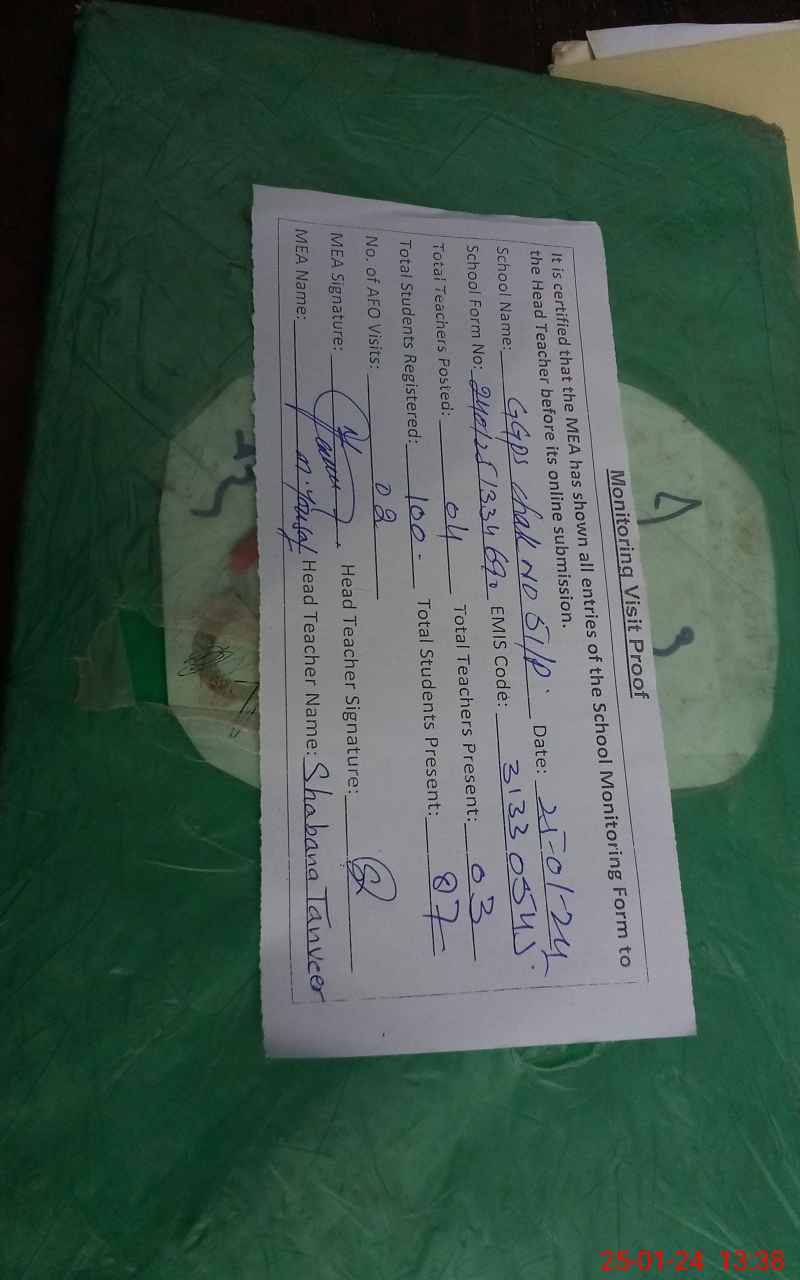 Monitoring Visit Proof
It is certified that the MEA has shown all entries of the School Monitoring Form to
the Head Teacher before its online submission.
School Name: GGPS Chak No 51/P. Date: 25-01-24
School Form No: EMIS Code: 31330545.
Total Teachers Posted: 04 Total Teachers Present: 03
Total Students Registered: 100. Total Students Present: 87
No. of AFO Visits: 02
MEA Signature: Head Teacher Signature:
MEA Name: M. Yousaf Head Teacher Name: Shabana Tanveer
25-01-24 13:38